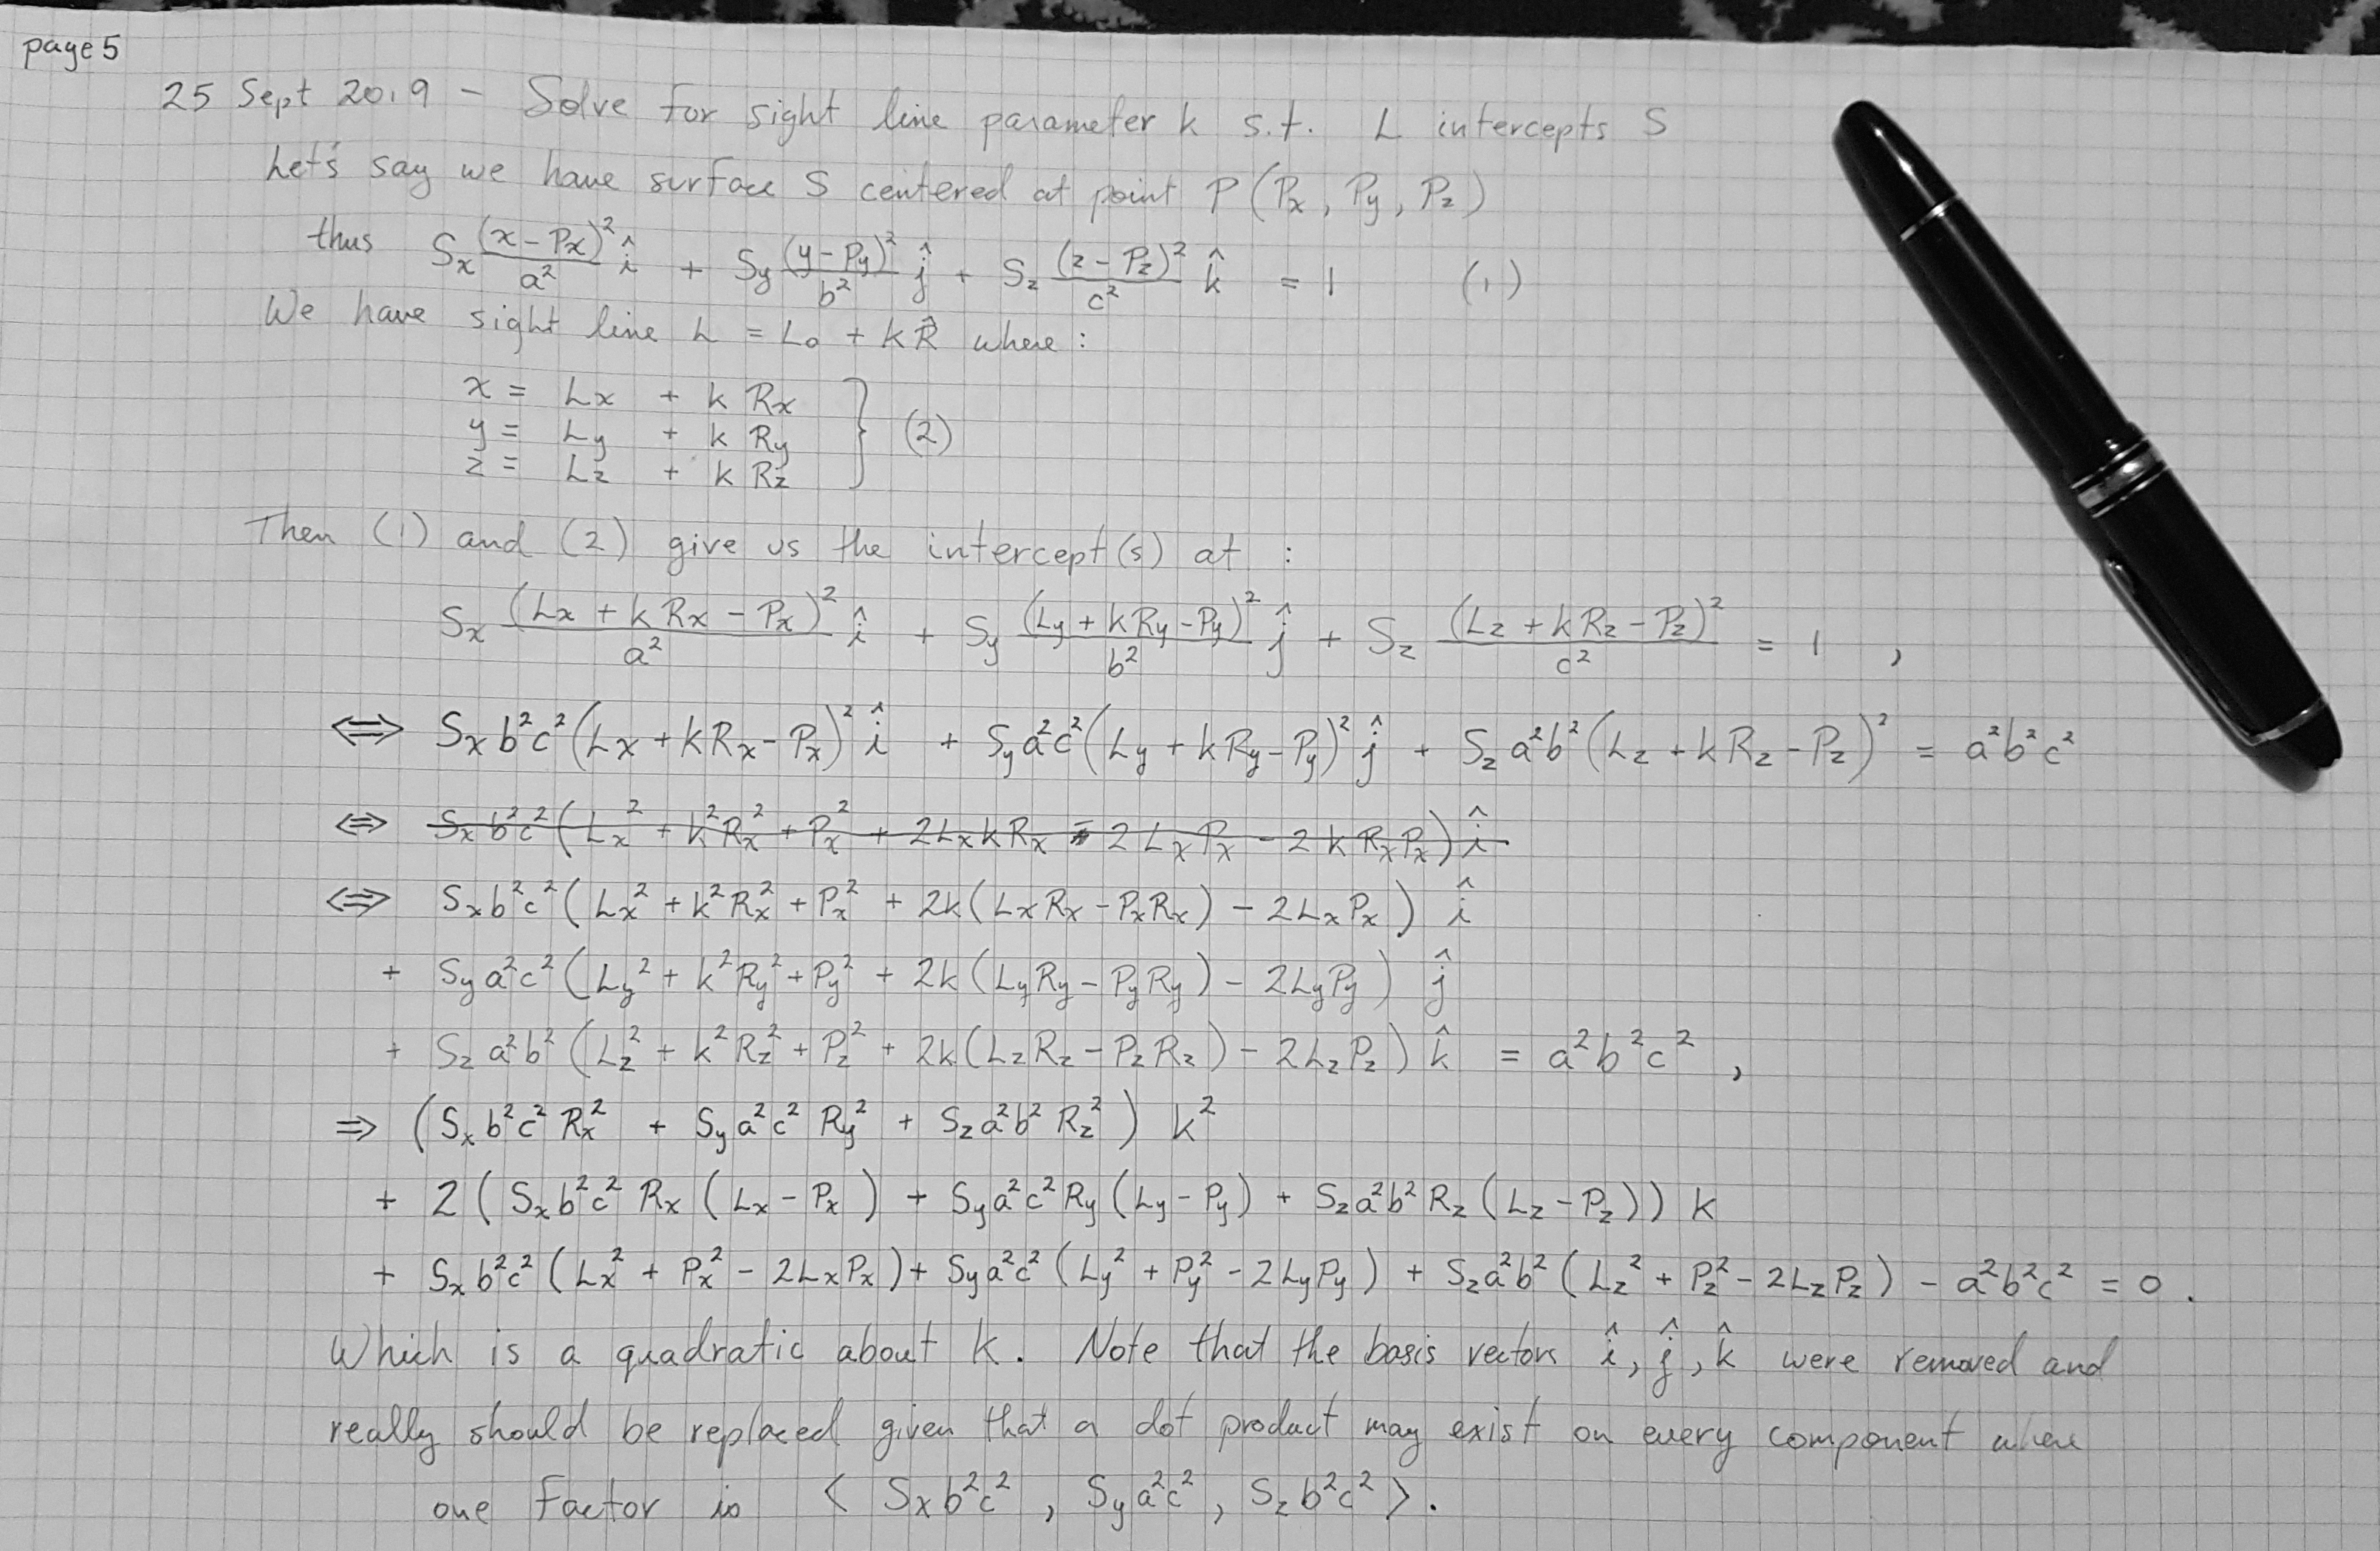 page 5
25 Sept 2019 – Solve for sight line parameter k s.t. L intercepts S
Let's say we have surface S centered at point P(Px, Py, Pz)
thus Sx (x-Px)²/a² î + Sy (y-Py)²/b² ĵ + Sz (z-Pz)²/c² k̂ = 1 (1)
We have sight line L = L₀ + kR̂ where:
x = Lx + k Rx
y = Ly + k Ry } (2)
z = Lz + k Rz
Then (1) and (2) give us the intercept(s) at :
Sx (Lx + k Rx - Px)²/a² î + Sy (Ly + k Ry - Py)²/b² ĵ + Sz (Lz + k Rz - Pz)²/c² = 1 ,
⇔ Sx b²c² (Lx + kRx - Px)² î + Sy a²c² (Ly + kRy - Py)² ĵ + Sz a²b² (Lz + kRz - Pz)² = a²b²c²
⇔ Sx b²c² (Lx² + k²Rx² + Px² + 2LxkRx - 2LxPx - 2kRxPx) î
⇔ Sx b²c² (Lx² + k²Rx² + Px² + 2k(LxRx - PxRx) - 2LxPx) î
+ Sy a²c² (Ly² + k²Ry² + Py² + 2k(LyRy - PyRy) - 2LyPy) ĵ
+ Sz a²b² (Lz² + k²Rz² + Pz² + 2k(LzRz - PzRz) - 2LzPz) k̂ = a²b²c² ,
⇒ (Sx b²c² Rx² + Sy a²c² Ry² + Sz a²b² Rz²) k²
+ 2 (Sx b²c² Rx (Lx - Px) + Sy a²c² Ry (Ly - Py) + Sz a²b² Rz (Lz - Pz)) k
+ Sx b²c² (Lx² + Px² - 2LxPx) + Sy a²c² (Ly² + Py² - 2LyPy) + Sz a²b² (Lz² + Pz² - 2LzPz) - a²b²c² = 0 .
Which is a quadratic about k. Note that the basis vectors î, ĵ, k̂ were removed and
really should be replaced given that a dot product may exist on every component where
one factor is < Sx b²c² , Sy a²c² , Sz b²c² >.